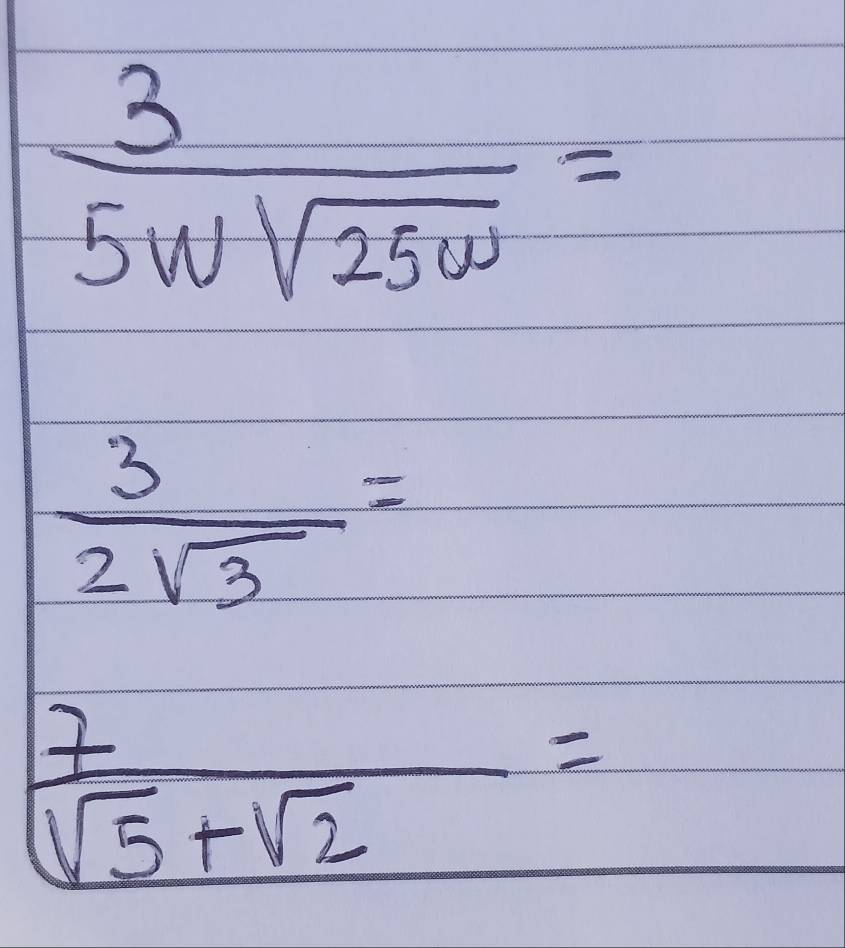 3/(5w√(25w)) =
3/(2√3) =
7/(√5+√2) =